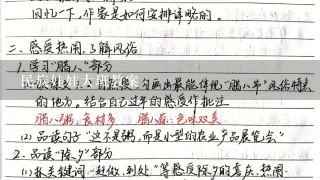 回忆一下,作家是如何安排详略的。
二、感受热闹,了解风俗
1.学习"腊八"部分
勾画出最能体现"腊八节"风俗特点
的地方。结合自己过年的感受作批注
腊八粥:食材多 腊八蒜:色味双美
(2)品读句子"这不是粥,而是小型的农业产品展览会"
2.品读"除夕"部分
(1)抓关键词"赶做、到处"等感受除夕的喜庆、热闹.
民族娃娃大班教案